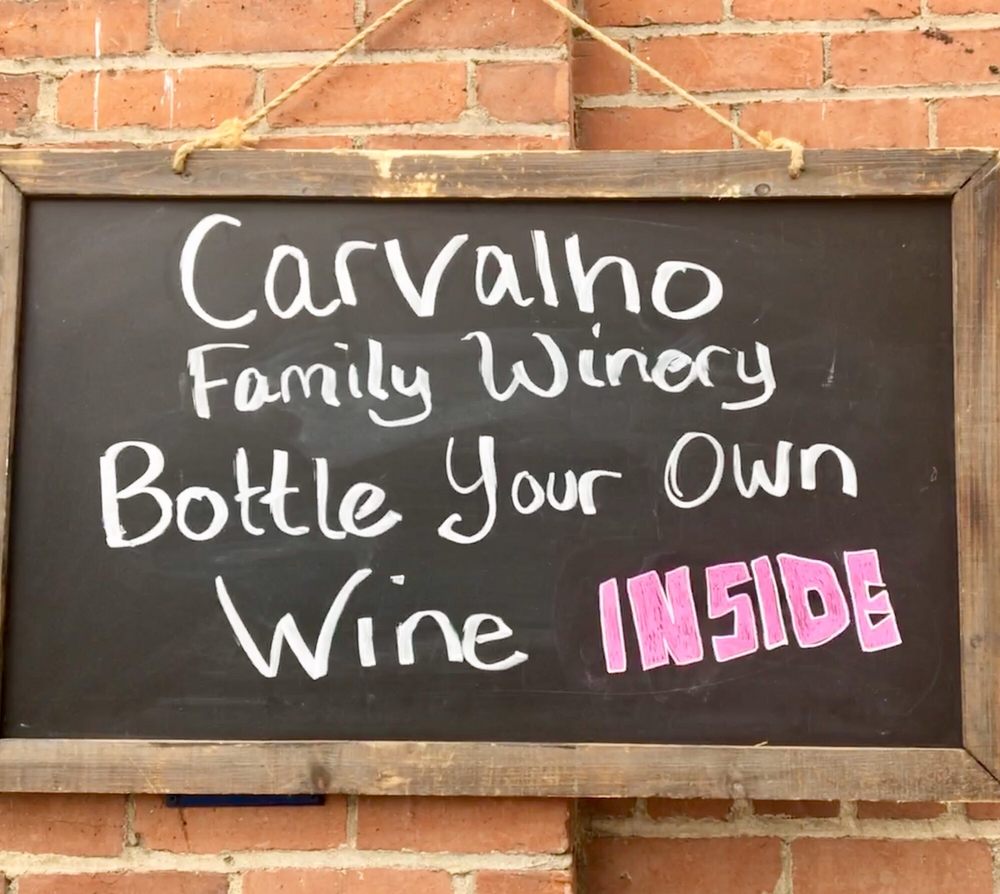 Carvalho
Family Winery
Bottle Your Own
Wine INSIDE